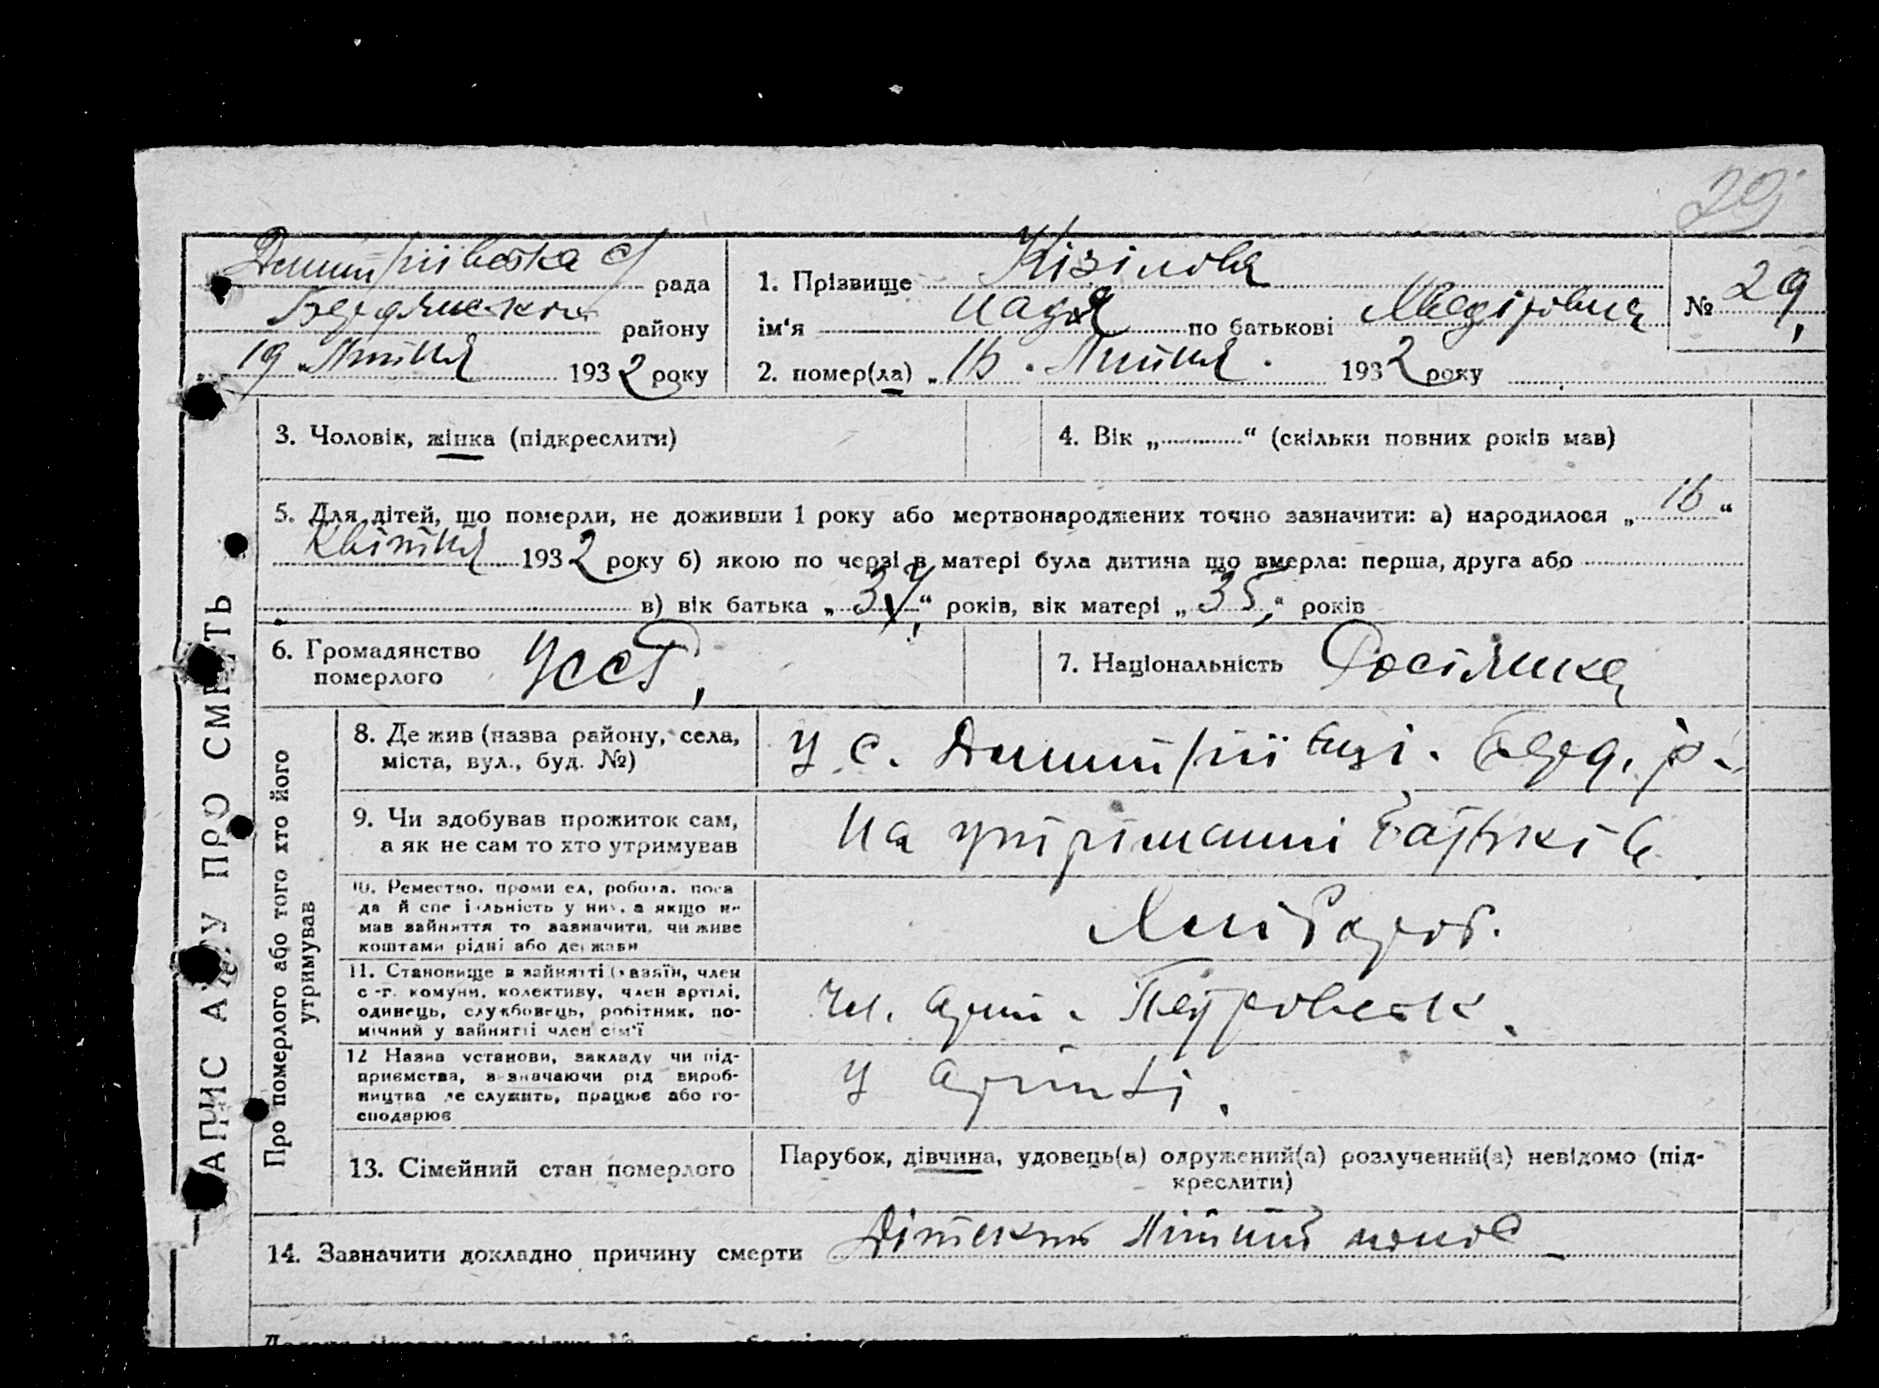 29
Дмитріївська с/рада
Бердянського району
„19„ Липня 1932 року
1. Прізвище Кізілова
ім'я Надя по батькові
№ 29
2. помер(ла) „16. Липня. 1932 року
3. Чоловік, жінка (підкреслити)
4. Вік „ “ (скільки повних років мав)
5. Для дітей, що померли, не доживши 1 року або мертвонароджених точно зазначити: а) народилося „16“
Квітня 1932 року б) якою по черзі в матері була дитина що вмерла: перша, друга або
в) вік батька „ “ років, вік матері „35“ років
6. Громадянство померлого УССР,
7. Національність Росіянка
ЗАПИС АКТУ ПРО СМЕРТЬ
Про померлого або того хто його утримував
8. Де жив (назва району, села,
міста, вул., буд. №)
у с. Дмитріївці. Берд. р-
9. Чи здобував прожиток сам,
а як не сам то хто утримував
На утріманні батьків
10. Ремество, промисел, робота, поса
да й спеціяльність у них, а якщо не
мав зайняття то зазначити, чи живе
коштами рідні або держави
Хлібороб.
11. Становище в зайнятті (хазяїн, член
с.-г. комуни, колективу, член артілі,
одинець, службовець, робітник, по-
мічний у зайнятті член сім'ї
Чл. Арт. Петровськ.
12 Назва установи, закладу чи під-
приємства, зазначаючи рід вироб-
ництва де служить, працює або го-
сподарює
У Артілі.
13. Сімейний стан померлого
Парубок, дівчина, удовець(а) одружений(а) розлучений(а) невідомо (під-
креслити)
14. Зазначити докладно причину смерти Дітский Літний понос